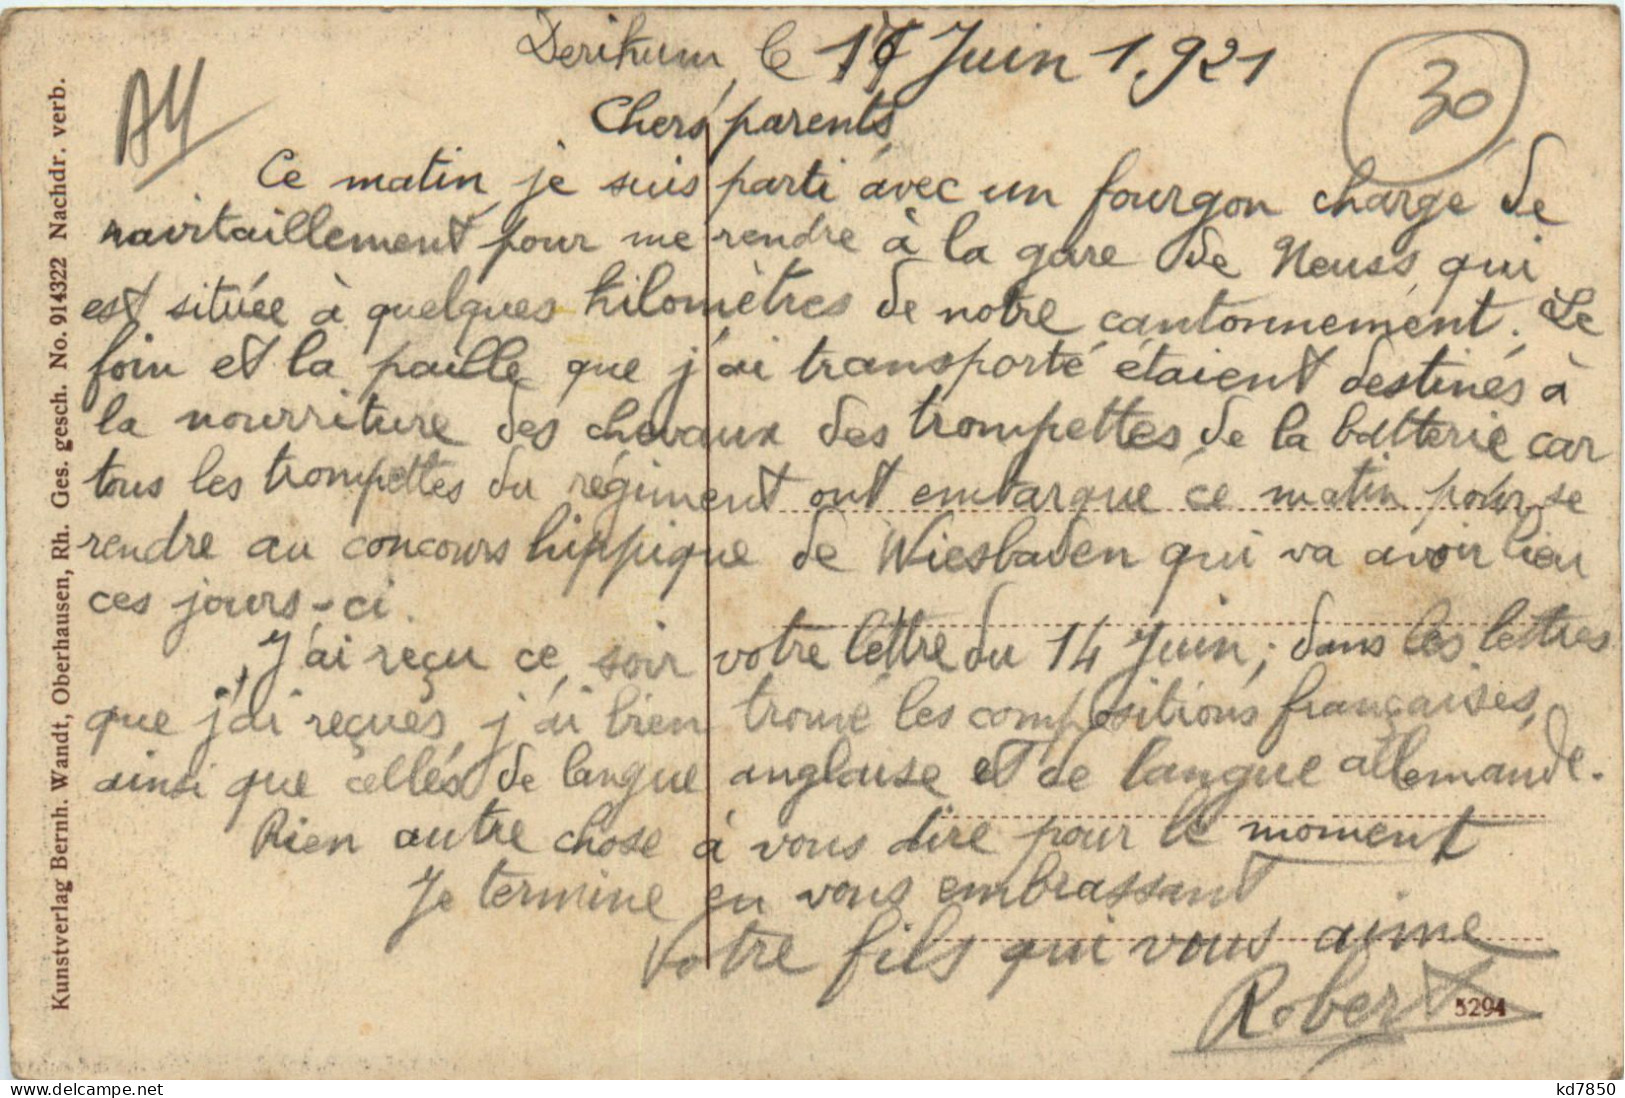 Derikum, le 17 Juin 1921
30
A4
Chers parents,
Ce matin, je suis parti avec un fourgon chargé de
ravitaillement pour me rendre à la gare de Neuss, qui
est située à quelques kilomètres de notre cantonnement. Le
foin et la paille que j'ai transporté étaient destinés à
la nourriture des chevaux des trompettes de la batterie car
tous les trompettes du régiment ont embarqué ce matin pour se
rendre au concours hippique de Wiesbaden qui va avoir lieu
ces jours-ci.
J'ai reçu ce soir votre lettre du 14 Juin; dans les lettres
que j'ai reçues, j'ai bien trouvé les compositions françaises,
ainsi que celles de langue anglaise et de langue allemande.
Rien autre chose à vous dire pour le moment
Je termine en vous embrassant
Votre fils qui vous aime
Robert
5294
Kunstverlag Bernh. Wandt, Oberhausen, Rh. Ges. gesch. No. 914322 Nachdr. verb.
kd7850